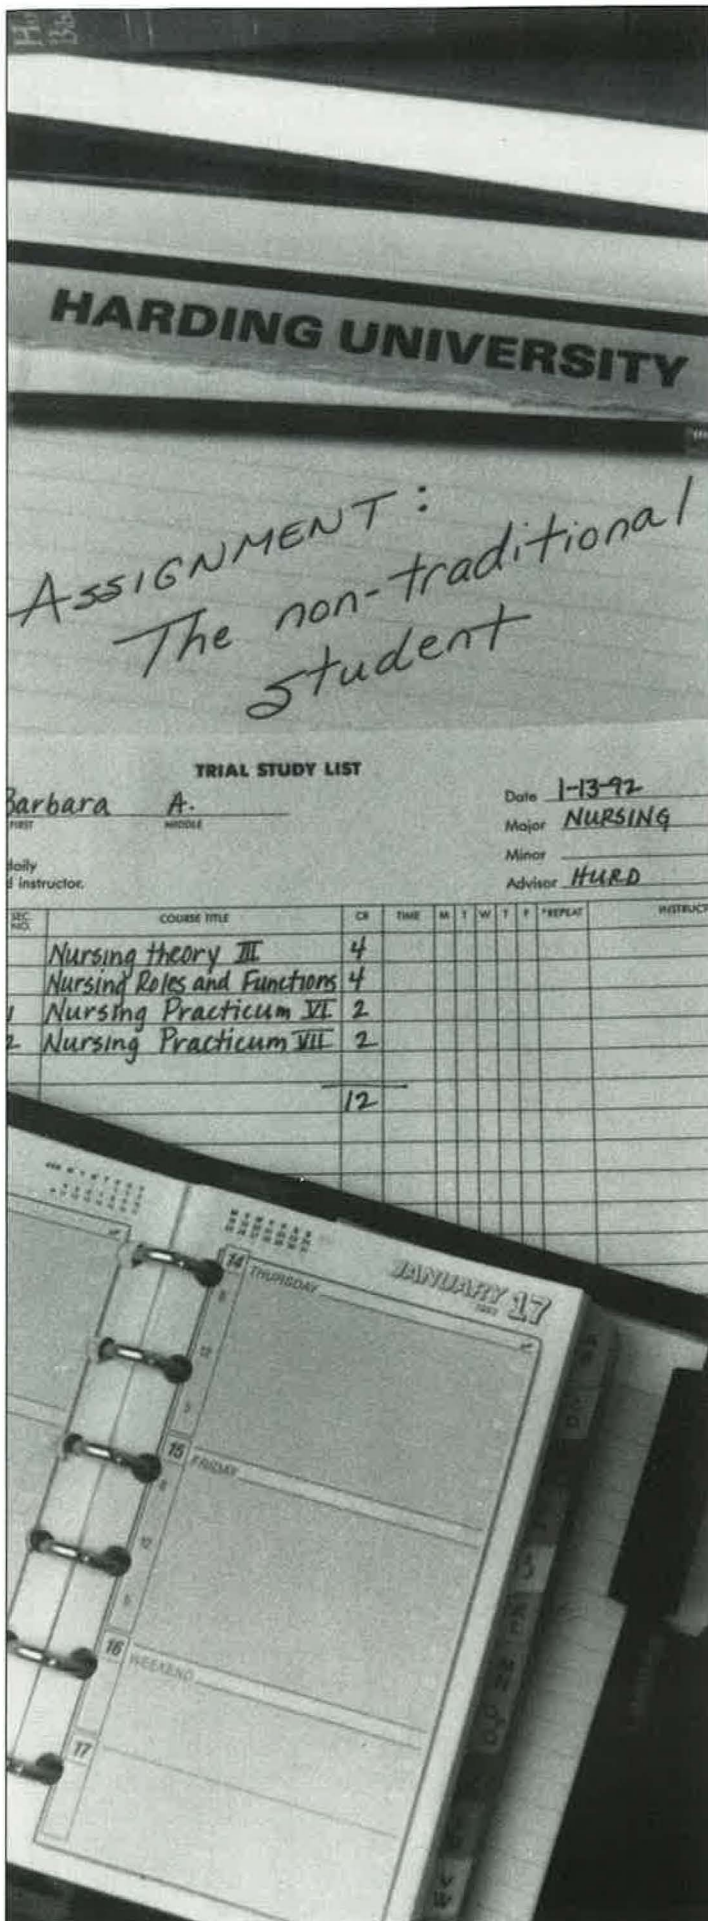 HARDING UNIVERSITY
ASSIGNMENT:
The non-traditional
student
TRIAL STUDY LIST
Barbara A.
FIRST MIDDLE
Date 1-13-92
Major NURSING
Minor
Advisor HURD
daily
d instructor.
SEC. NO. COURSE TITLE CR TIME M T W T F *REPEAT INSTRUCT
Nursing theory III 4
Nursing Roles and Functions 4
1 Nursing Practicum VI 2
2 Nursing Practicum VII 2
12
JANUARY 17
14 THURSDAY
8
12
5
15 FRIDAY
8
12
5
16 WEEKEND
17